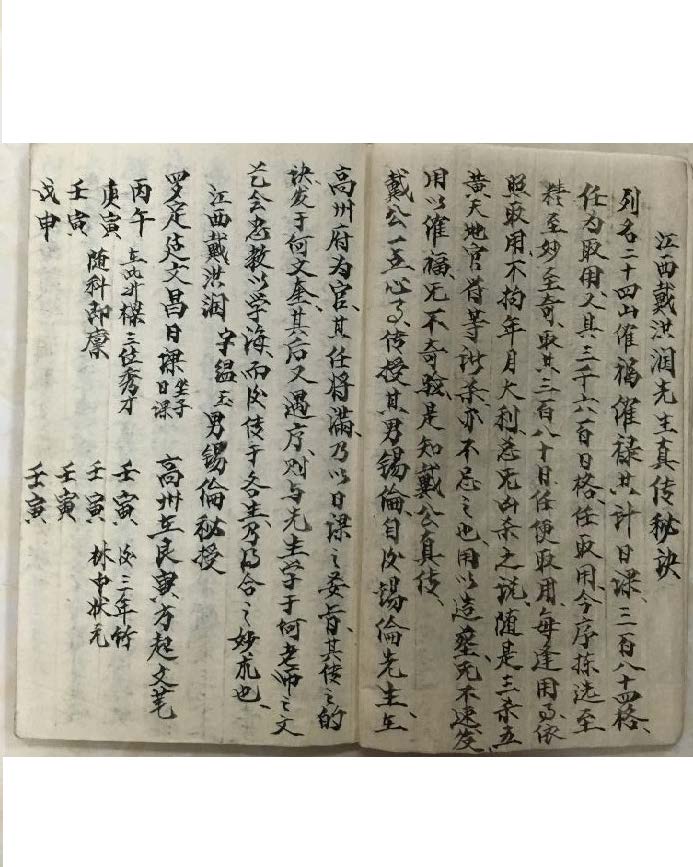 江西戴洪润先生真传秘诀
列名二十四山催福催禄共计日课、三百八十四格、
任为取用、又具三千六百日格、任取用今序拣选至
精至妙至奇、取其三百八十日任便取用、每逢用事、依
照取用、不拘年月大利、总无凶杀之说、随是三杀五
黄天地官符等诸杀亦不忌之也、用以造葬、无不速发、
用以催福、无不奇验、是知戴公真传、
戴公一点心事、传授其男锡伦、自后锡伦先生、在
高州府为官、其任将满、乃以日课之妙旨、其传之的
诀发于何文奎、其后又遇序、则与先生学于何老师之文
艺会忠教以学海、而后传于各生、乃为合之妙用也、
江西戴洪润 字韫玉 男锡伦秘授
罗定廷文昌日课 坐子日课 高州在良寅方起文笔
丙午 三位秀才 壬寅 后三年竹
庚寅 随科即廪 壬寅 林中状元
壬寅 壬寅
戊申 壬寅